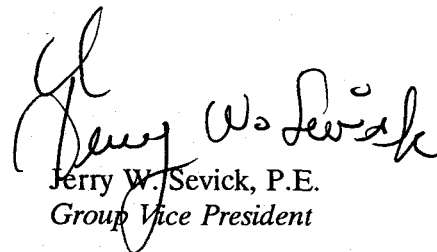 Jerry W. Sevick
Jerry W. Sevick, P.E.
Group Vice President